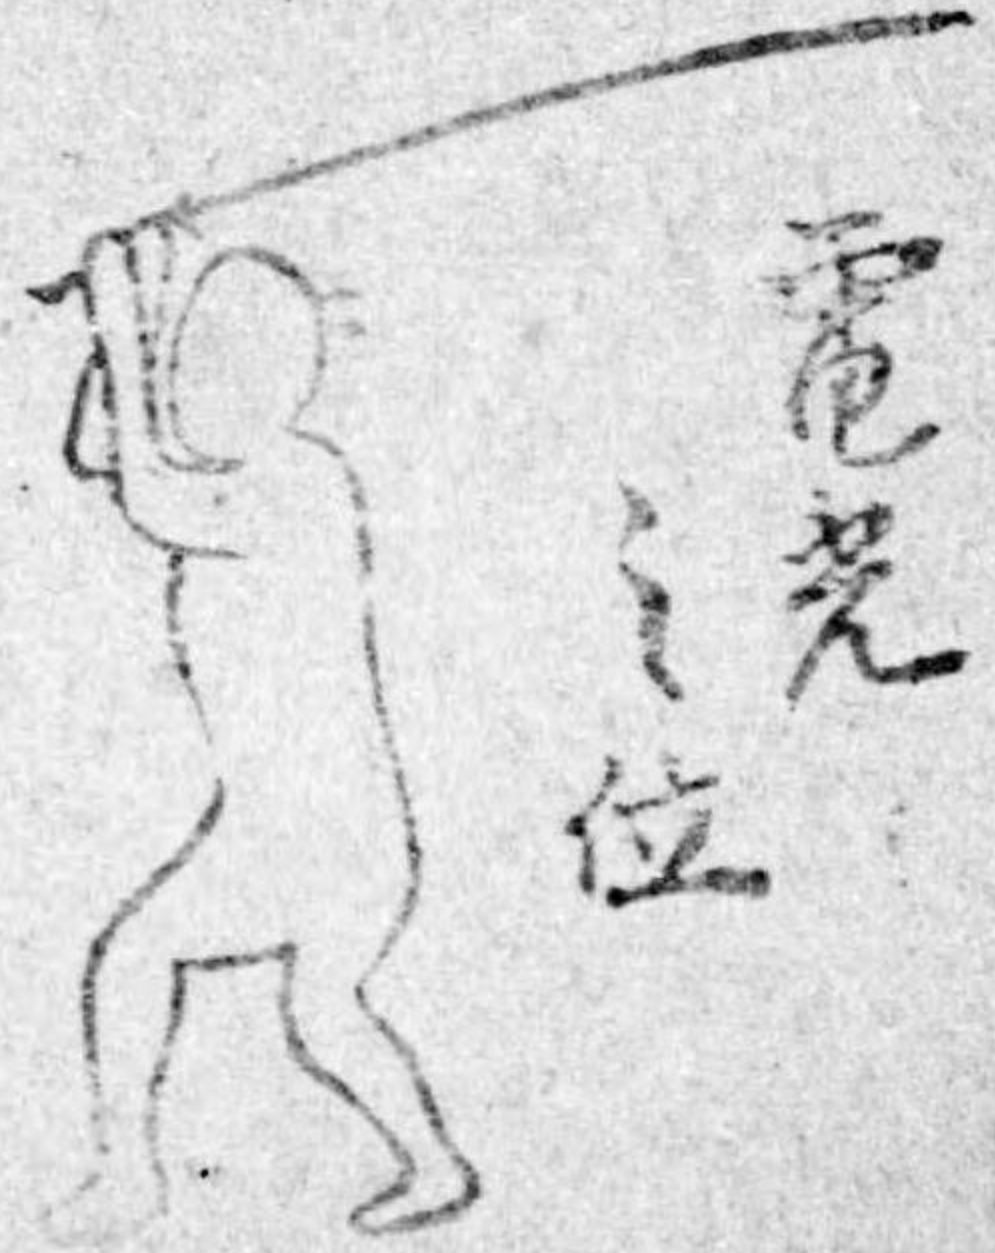 電光
之位